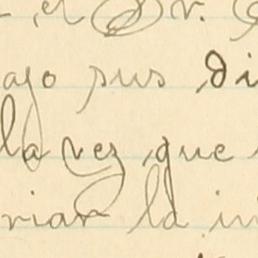 , el Dr.
ajo sus di
la vez que
rian la in